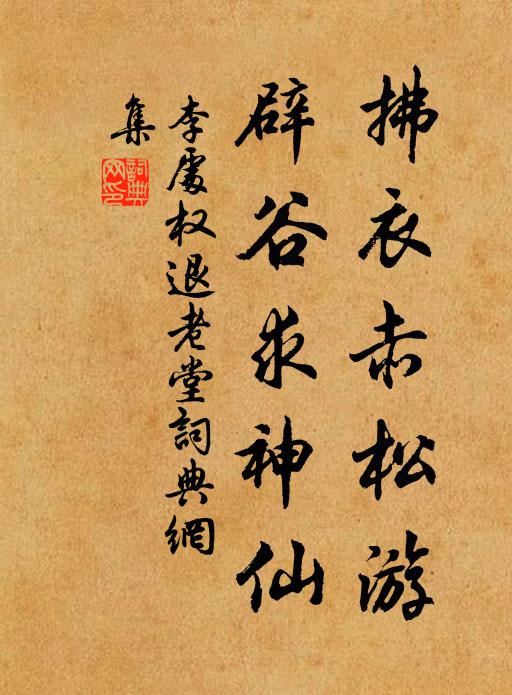 拂衣赤松游
辟谷求神仙
李處权退老堂詞典網
集
詞典
网印